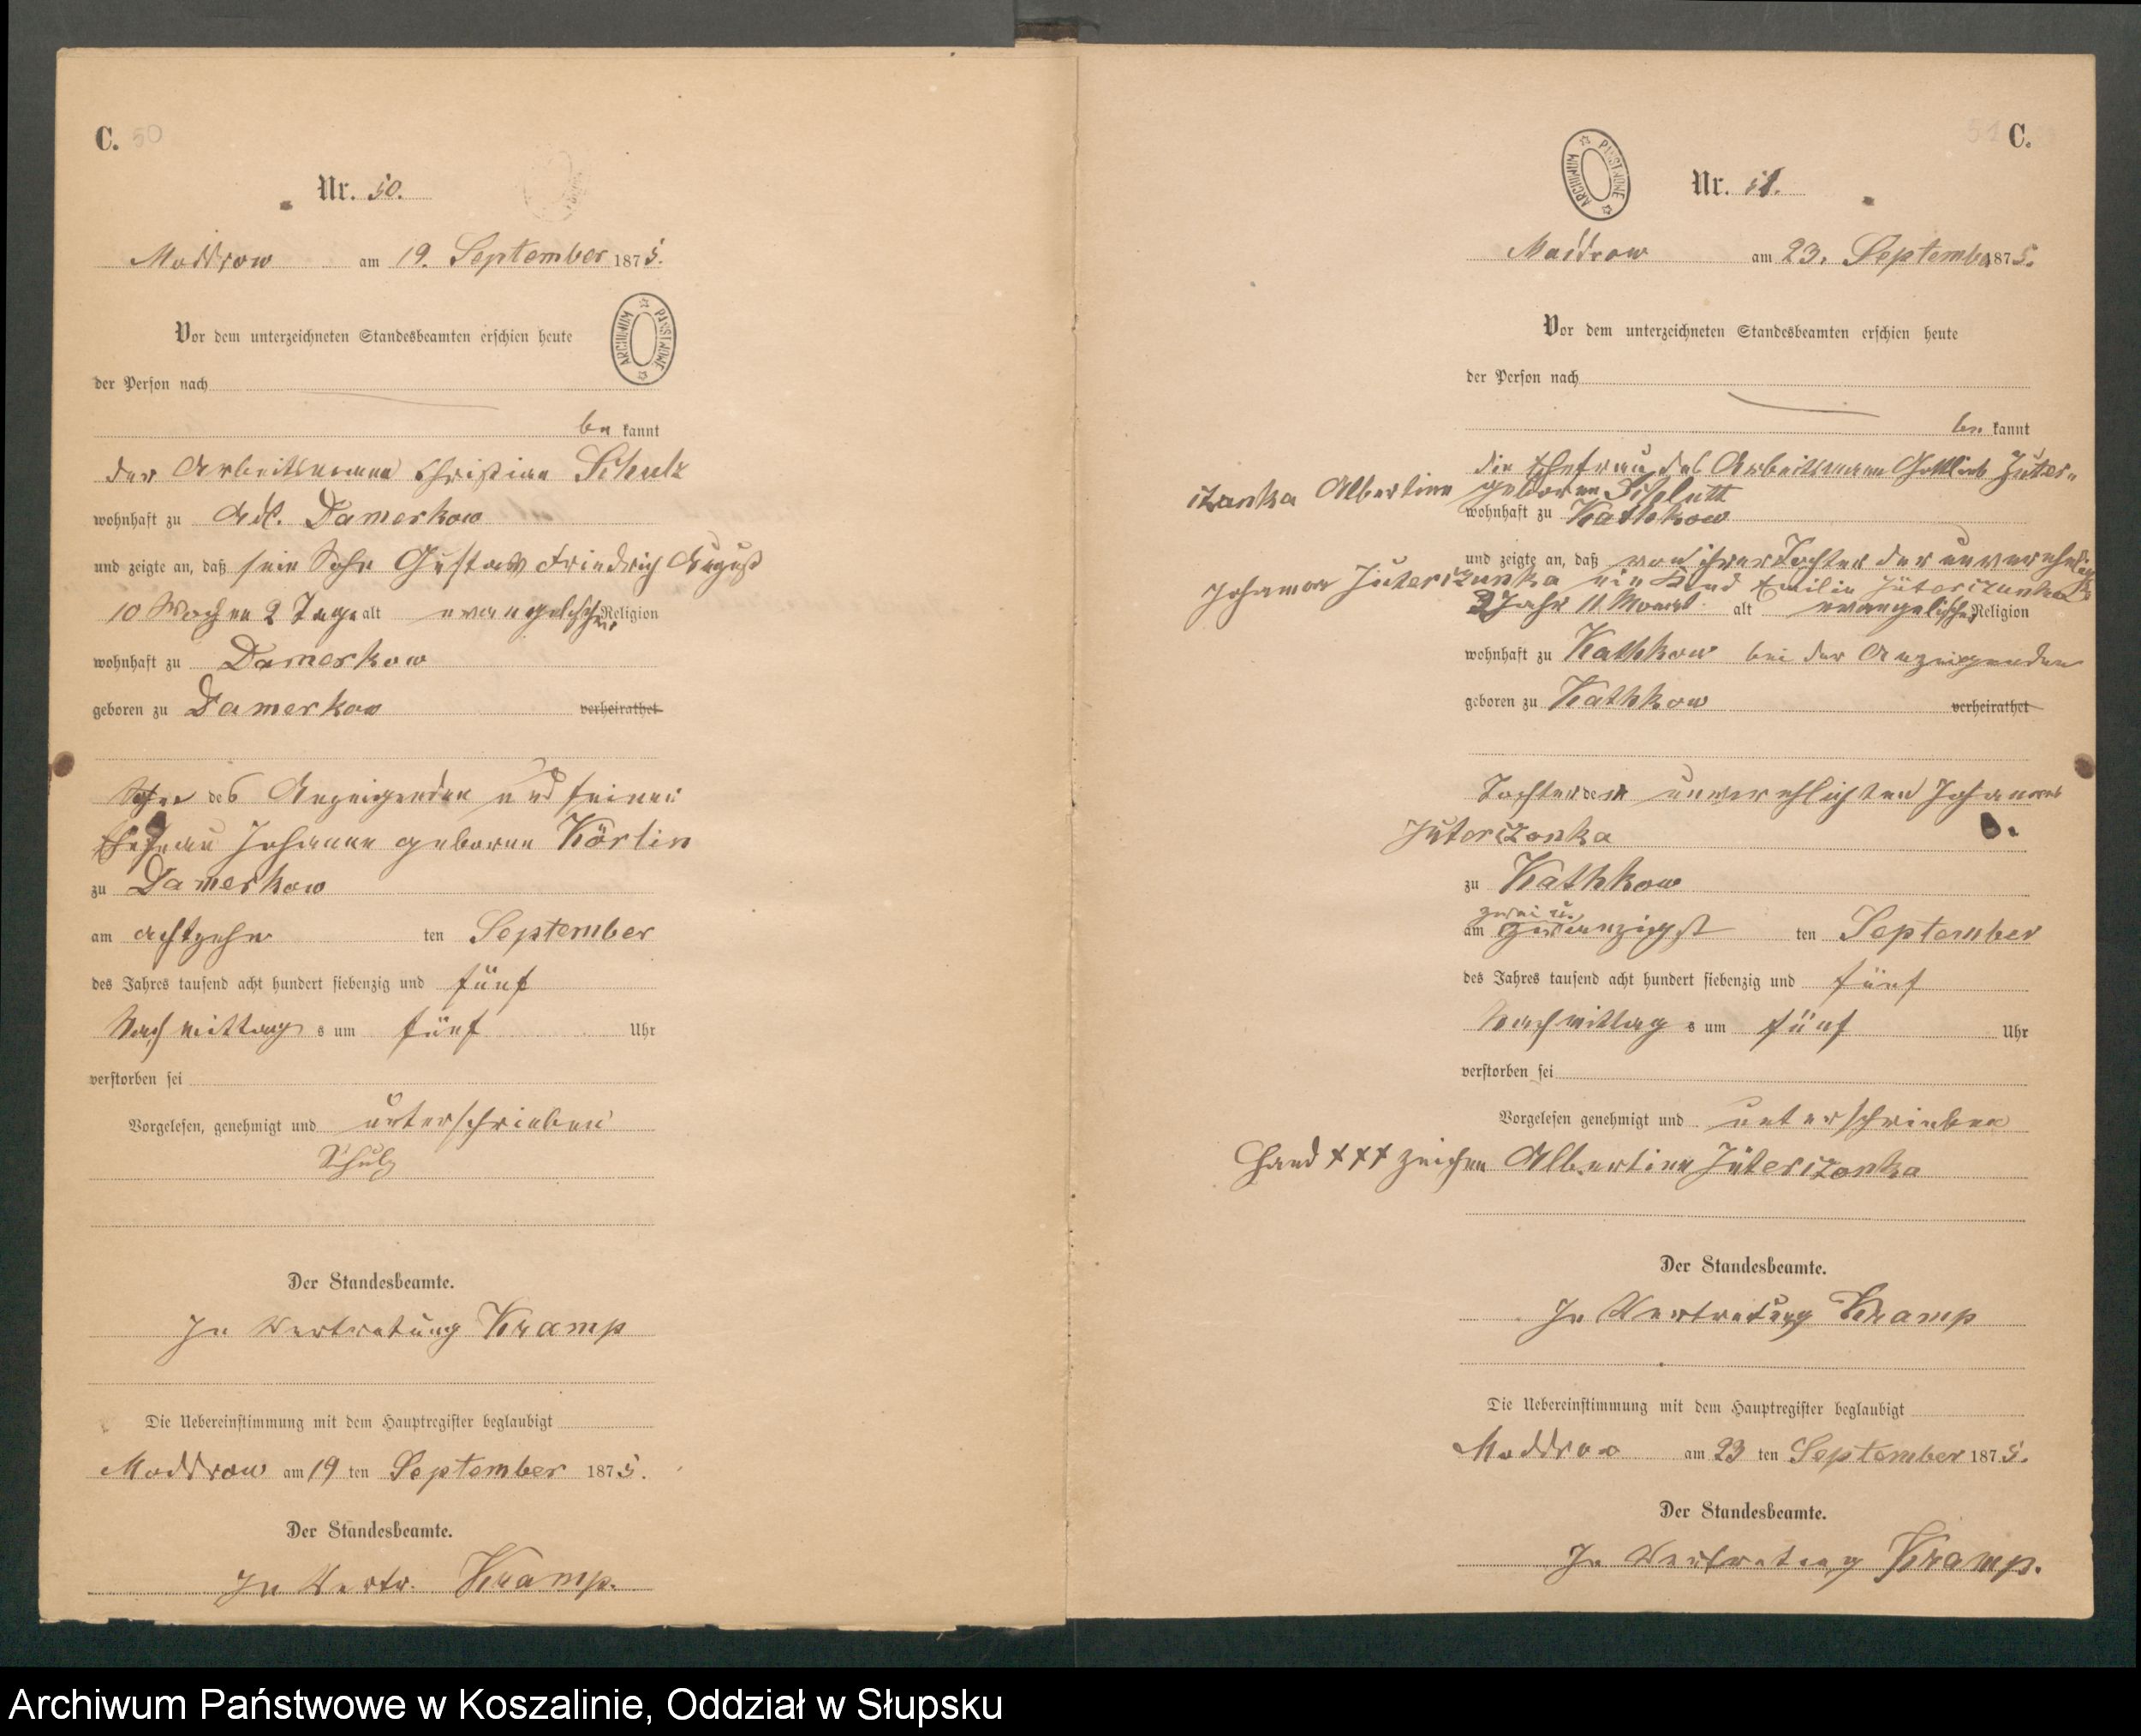 C. 50
Nr. 50.
Moddrow am 19. September 1875.
Vor dem unterzeichneten Standesbeamten erschien heute
ARCHIWUM PAŃSTWOWE
der Person nach
be kannt
der Arbeitsmann Christian Schulz
wohnhaft zu Adl. Damerkow
und zeigte an, daß sein Sohn Gustav Friedrich August
10 Wochen 2 Tage alt evangelischer Religion
wohnhaft zu Damerkow
geboren zu Damerkow verheirathet
Sohn des Anzeigenden und seiner
Ehefrau Johanne geborene Körlin
zu Damerkow
am achtzehn ten September
des Jahres tausend acht hundert siebenzig und fünf
Nachmittags um fünf Uhr
verstorben sei
Vorgelesen, genehmigt und unterschrieben
Schulz
Der Standesbeamte.
In Vertretung Kramp
Die Uebereinstimmung mit dem Hauptregister beglaubigt
Moddrow am 19 ten September 1875.
Der Standesbeamte.
In Vertr. Kramp.
51 C.
ARCHIWUM PAŃSTWOWE
Nr. 51.
Moddrow am 23. September 1875.
Vor dem unterzeichneten Standesbeamten erschien heute
der Person nach
be kannt
die Ehefrau des Arbeitsmann Gottlieb Jüter-
czonka Albertine geborene
wohnhaft zu Kathkow
und zeigte an, daß von ihrer Tochter der unverehelichte
Johanna Jüterczonka ein Kind Emilie Jüterczonka
2 Jahr 11 Monat alt evangelischer Religion
wohnhaft zu Kathkow bei der Anzeigenden
geboren zu Kathkow verheirathet
Tochter der unverehlichten Johanne
Jüterczonka
zu Kathkow
zwei u.
am zwanzigst ten September
des Jahres tausend acht hundert siebenzig und fünf
Nachmittags um fünf Uhr
verstorben sei
Vorgelesen genehmigt und unterschrieben
Hand +++ zeichen Albertine Jüterczonka
Der Standesbeamte.
In Vertretung Kramp
Die Uebereinstimmung mit dem Hauptregister beglaubigt
Moddrow am 23 ten September 1875.
Der Standesbeamte.
In Vertretung Kramp.
Archiwum Państwowe w Koszalinie, Oddział w Słupsku